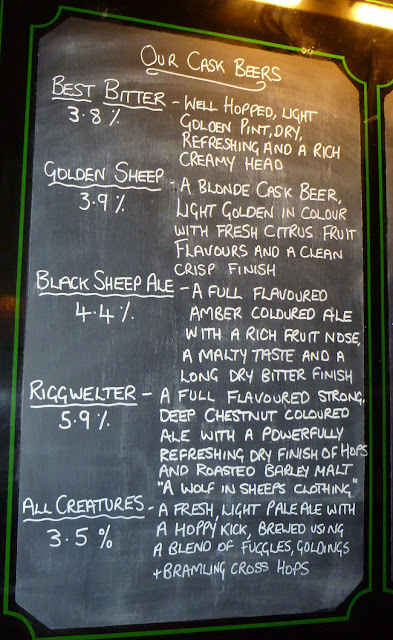 OUR CASK BEERS
BEST BITTER - WELL HOPPED, LIGHT
3.8% GOLDEN PINT, DRY,
REFRESHING AND A RICH
CREAMY HEAD
GOLDEN SHEEP - A BLONDE CASK BEER,
3.9% LIGHT GOLDEN IN COLOUR
WITH FRESH CITRUS FRUIT
FLAVOURS AND A CLEAN
CRISP FINISH
BLACK SHEEP ALE - A FULL FLAVOURED
4.4% AMBER COLOURED ALE
WITH A RICH FRUIT NOSE,
A MALTY TASTE AND A
LONG DRY BITTER FINISH
RIGGWELTER - A FULL FLAVOURED STRONG,
5.9% DEEP CHESTNUT COLOURED
ALE WITH A POWERFULLY
REFRESHING DRY FINISH OF HOPS
AND ROASTED BARLEY MALT
"A WOLF IN SHEEPS CLOTHING"
ALL CREATURES - A FRESH, LIGHT PALE ALE WITH
3.5% A HOPPY KICK, BREWED USING
A BLEND OF FUGGLES, GOLDINGS
+ BRAMLING CROSS HOPS